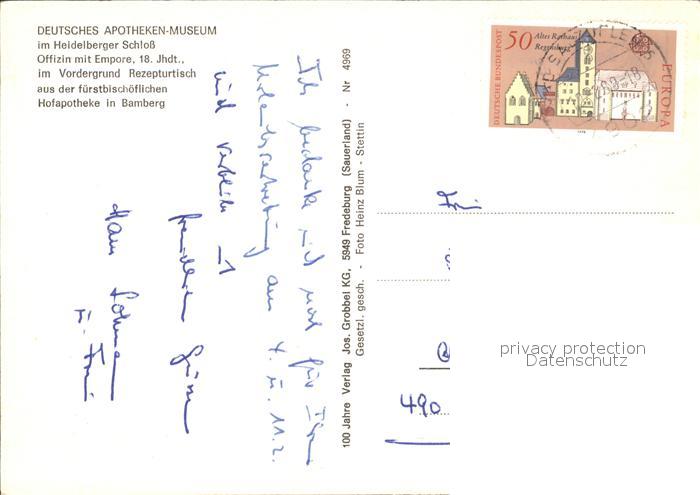 DEUTSCHES APOTHEKEN-MUSEUM
im Heidelberger Schloß
Offizin mit Empore, 18. Jhdt.,
im Vordergrund Rezepturtisch
aus der fürstbischöflichen
Hofapotheke in Bamberg
Ich bedanke mich noch für Ihre
Urlaubsvertretung am 4. u. 11.2.
und verbleibe mit
freundlichen Grüßen
u. Frau
100 Jahre Verlag Jos. Grobbel KG, 5949 Fredeburg (Sauerland) - Nr 4969
Gesetzl. gesch. - Foto Heinz Blum - Stettin
DEUTSCHE BUNDESPOST
50
Altes Rathaus
Regensburg
EUROPA
490
privacy protection
Datenschutz